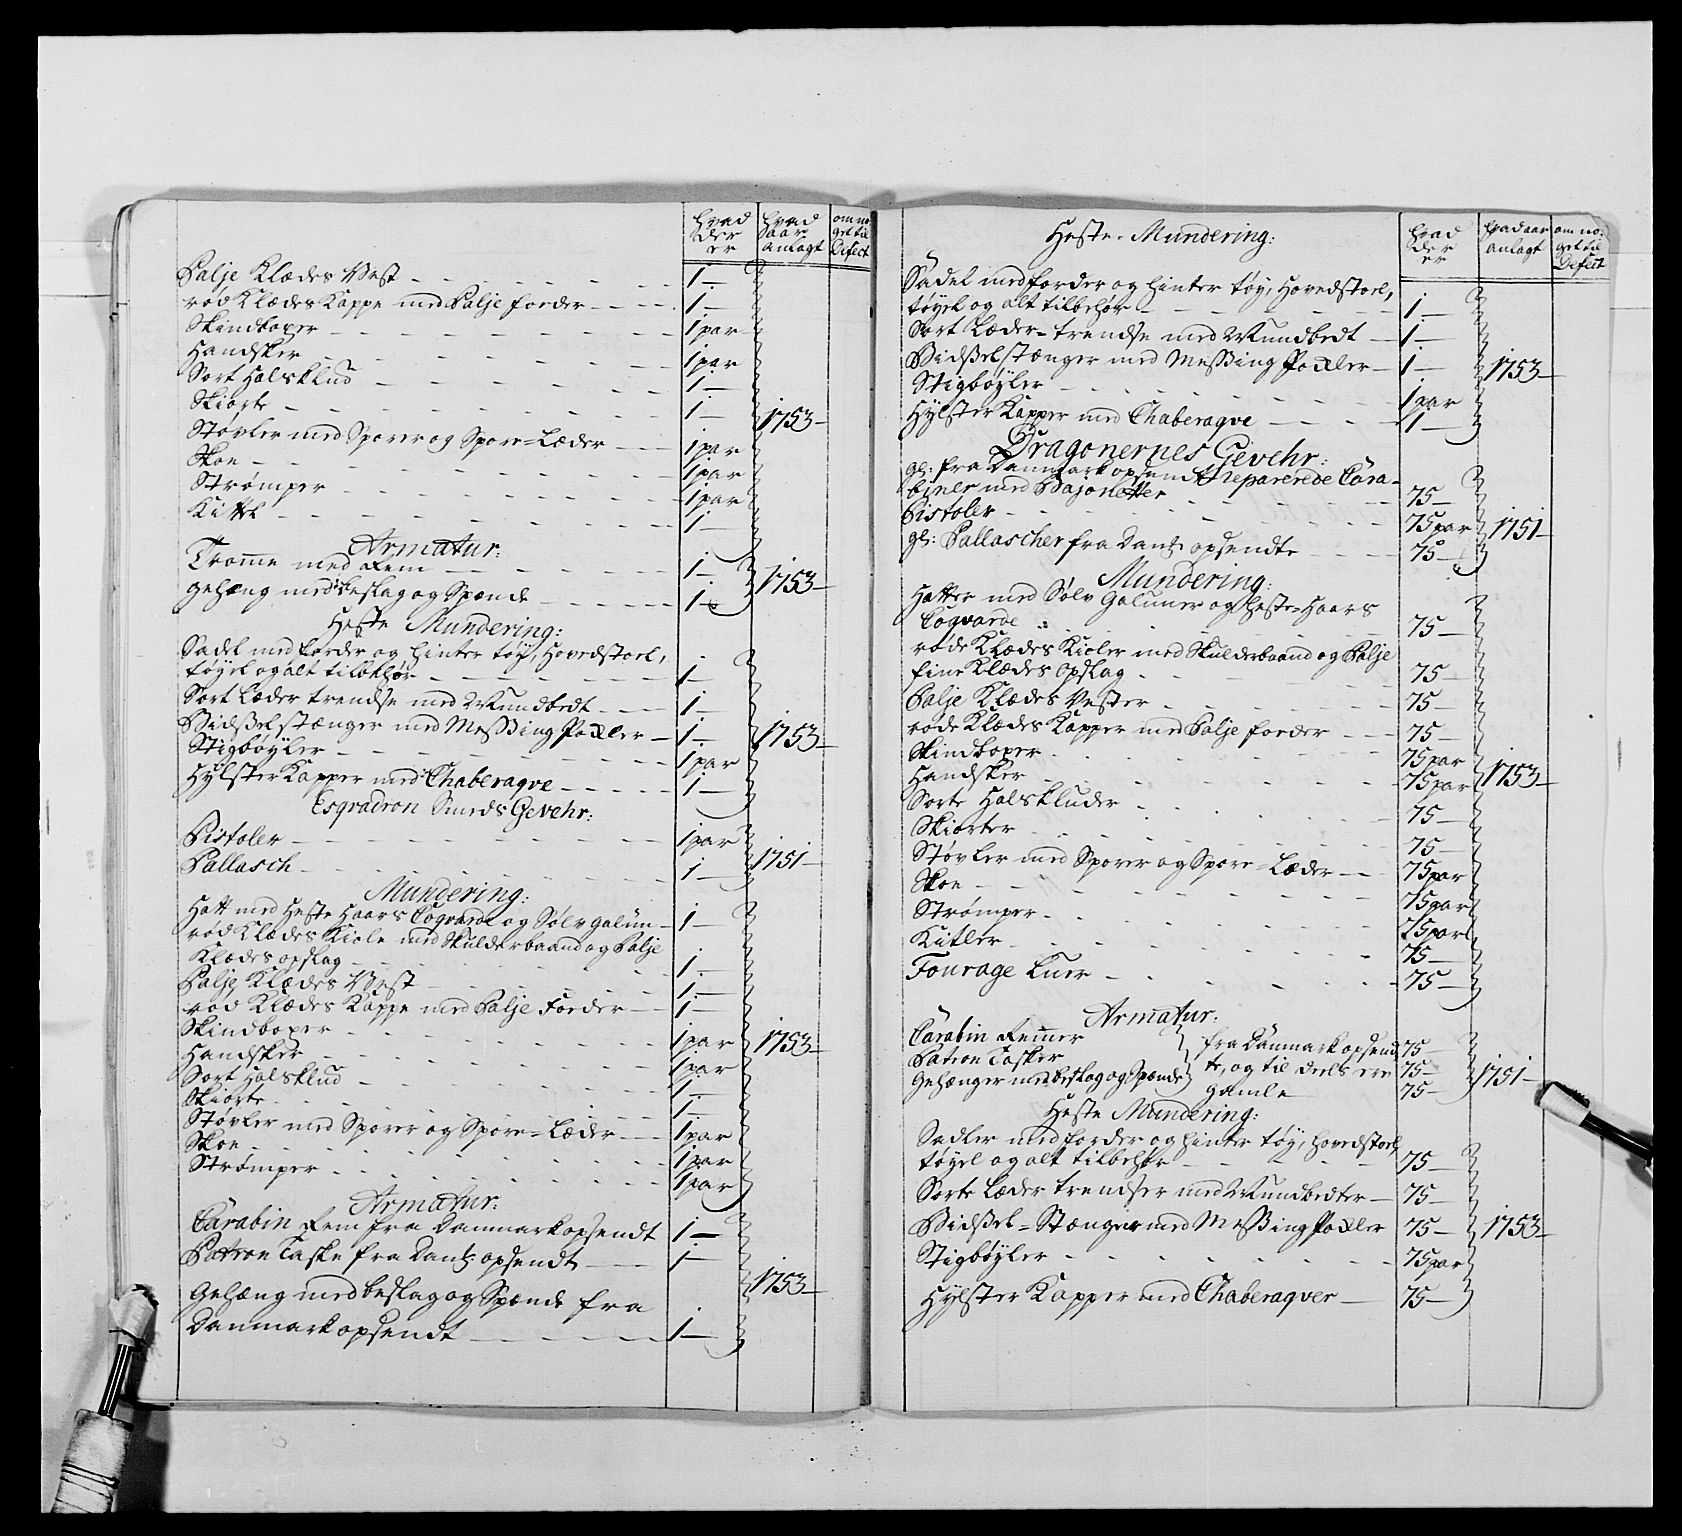 hvad der er
hvad aar anlagt
om noget til Defect
Palje Klædes Vest 1
rød Klædes Kappe med Palje forder 1
Skindboxer 1 par
Handsker 1 par
Sort Halsklud 1
Skiorte 1 1753
Støvler med Sporer og Spore=Læder 1 par
Skoe 1 par
Strømper 1 par
Kittel 1
Armatur:
Tromme med Rem 1 1753
gehæng med beslag og Spænde 1
Heste Mundering:
Sadel med forder og hinter tøy, Hovedstoel,
tøyel og alt tilbehør 1
Sort Læder trendse med Mundbedt 1
Bidsselstænger med Messing Poxler 1 1753
Stigbøyler 1 par
Hylster Kapper med Chaberaqve 1
Esqvadron Smeds Gevehr:
Pistoler 1 par 1751
Pallasch 1
Mundering:
Hatt med Heste Haars Coqvarde og Sølv galun 1
rød Klædes Kiole med Skulderbaand og Palje
Klædes opslag 1
Palje Klædes Vest 1
rød Klædes Kappe med Palje Forder 1
Skindboxer 1 par 1753
Handsker 1 par
Sort Halsklud 1
Skiorte 1
Støvler med Sporer og Spore=Læder 1 par
Skoe 1 par
Strømper 1 par
Armatur:
Carabin Rem fra Danmark opsendt 1
Patron Taske fra Dank: opsendt 1
1753
Gehæng med beslag og Spænde fra
Danmark opsendt 1
Heste-Mundering:
hvad der er
hvad aar anlagt
om noget til Defect
Sadel med forder og hinter tøy, Hovedstoel,
tøyel og alt tilbehør 1
Sort Læder-trendse med Mundbedt 1
Bidsselstænger med Messing Poxler 1 1753
Stigbøyler 1 par
Hylster Kapper med Chaberaqve 1
Dragonernes Gevehr:
gl: fra Danmark opsendt reparerede Cara-
biner med Bajonetter 75
Pistoler 75 par 1751
gl: Pallascher fra Dank: opsendte 75
Mundering:
Hatter med Sølv Galuner og Heste=Haars
Coqvarde 75
røde Klædes Kioler med Skulderbaand og Palje
fine Klædes Opslag 75
Palje Klædes Vester 75
røde Klædes Kapper med Palje forder 75
Skindboxer 75 par
Handsker 75 par 1753
Sorte Halskluder 75
Skiorter 75
Støvler med Sporer og Spore=Læder 75 par
Skoe 75 par
Strømper 75 par
Kitler 75
Fourage Luer 75
Armatur:
Carabin Remer 75
Patron Tasker 75
Gehænger med beslag og Spænde 75 1751
fra Danmark opsend-
te, og til deels ere
gamle
Heste Mundering:
Sadler med forder og hinter tøy, hovedstoel,
tøyel og alt tilbehør 75
Sorte Læder trendser med Mundbedter 75
Bidssel=Stænger med Messing Poxler 75 1753
Stigbøyler 75 par
Hylster Kapper med Chaberaqver 75